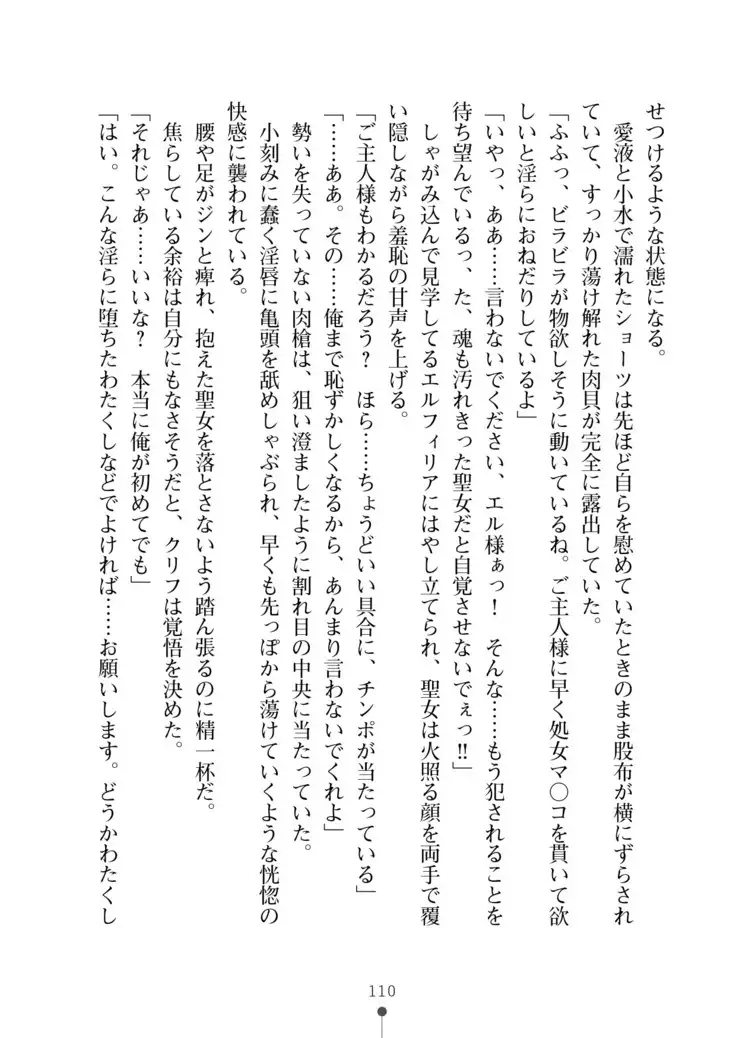 せつけるような状態になる。
　愛液と小水で濡れたショーツは先ほど自らを慰めていたときのまま股布が横にずらされ
ていて、すっかり蕩け解れた肉貝が完全に露出していた。
「ふふっ、ビラビラが物欲しそうに動いているね。ご主人様に早く処女マ〇コを貫いて欲
しいと淫らにおねだりしているよ」
「いやっ、ああ……言わないでください、エル様ぁっ！　そんな……もう犯されることを
待ち望んでいるっ、た、魂も汚れきった聖女だと自覚させないでぇっ‼」
　しゃがみ込んで見学してるエルフィリアにはやし立てられ、聖女は火照る顔を両手で覆
い隠しながら羞恥の甘声を上げる。
「ご主人様もわかるだろう？　ほら……ちょうどいい具合に、チンポが当たっている」
「……ああ。その……俺まで恥ずかしくなるから、あんまり言わないでくれよ」
　勢いを失っていない肉槍は、狙い澄ましたように割れ目の中央に当たっていた。
　小刻みに蠢く淫唇に亀頭を舐めしゃぶられ、早くも先っぽから蕩けていくような恍惚の
快感に襲われている。
　腰や足がジンと痺れ、抱えた聖女を落とさないよう踏ん張るのに精一杯だ。
　焦らしている余裕は自分にもなさそうだと、クリフは覚悟を決めた。
「それじゃあ……いいな？　本当に俺が初めてでも」
「はい。こんな淫らに堕ちたわたくしなどでよければ……お願いします。どうかわたくし
110